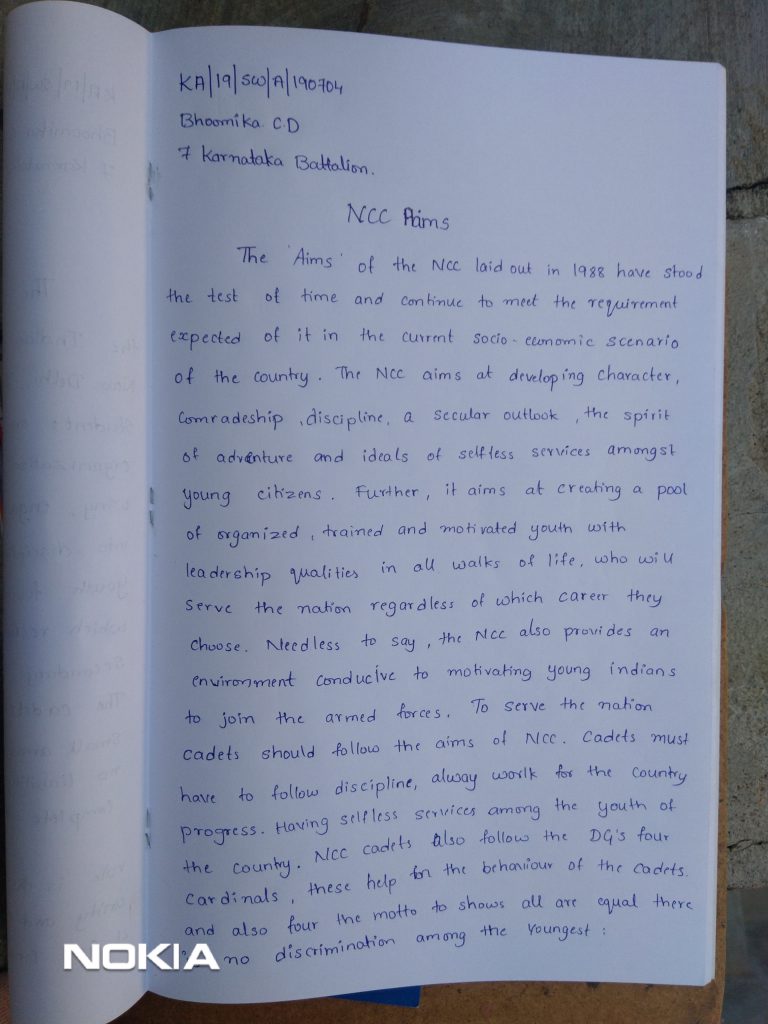 KA|19|SW|A|190704
Bhoomika. C.D
7 Karnataka Battalion.
NCC Aims
The 'Aims' of the NCC laid out in 1988 have stood
the test of time and continue to meet the requirement
expected of it in the current socio-economic scenario
of the country. The NCC aims at developing character,
Comradeship, discipline, a secular outlook, the spirit
of adventure and ideals of selfless services amongst
young citizens. Further, it aims at creating a pool
of organized, trained and motivated youth with
leadership qualities in all walks of life, who will
serve the nation regardless of which career they
choose. Needless to say, the NCC also provides an
environment conducive to motivating young indians
to join the armed forces. To serve the nation
cadets should follow the aims of NCC. Cadets must
have to follow discipline, alway work for the country
progress. Having selfless services among the youth of
the country. NCC cadets also follow the DG's four
Cardinals, these help for the behaviour of the cadets.
and also four the motto to shows all are equal there
no discrimination among the youngest:
NOKIA